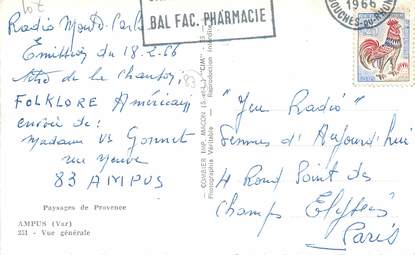 BAL FAC. PHARMACIE
1966
BOUCHES-DU-RHÔNE
Radio Monte-Carlo
Emission du 18.2.66
titre de la chanson
FOLKLORE Américain
envoi de:
Madame Vs Gonnet
rue neuve
83 AMPUS
Paysages de Provence
AMPUS (Var)
251 - Vue générale
COMBIER IMP. MACON (S.-et-L.) "CIM"
Photographie Véritable - Reproduction Interdite
"Jeu Radio"
Femmes d'Aujourd'hui
4 Rond Point des
Champs Elysées
Paris